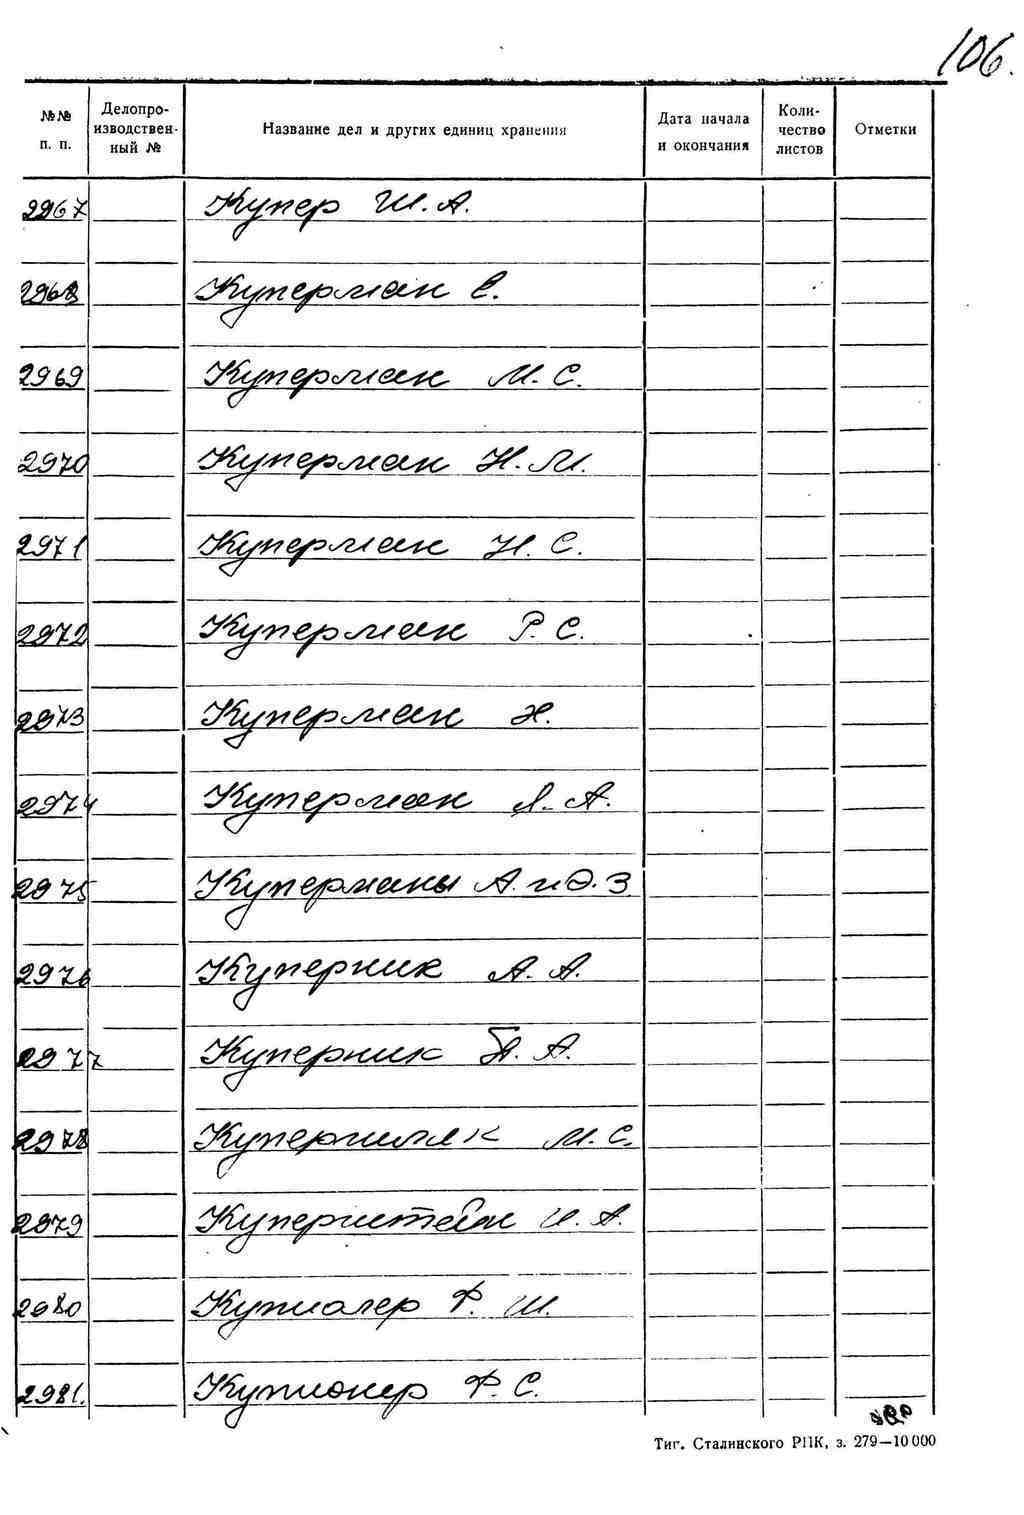 106.
№№ п. п.
Делопроизводственный №
Название дел и других единиц хранения
Дата начала и окончания
Количество листов
Отметки
2967 Купер Ш. А.
2968 Куперман С.
2969 Куперман М. С.
2970 Куперман Н. М.
2971 Куперман Н. С.
2972 Куперман Р. С.
2973 Куперман Х.
2974 Куперман Я. А.
2975 Куперманы А. и Э. З.
2976 Куперник А. А.
2977 Куперник А. А.
2978 Купершляк М. С.
2979 Куперштейн И. А.
2980 Купиолер Ф. Ш.
2981. Купионер Ф. С.
Тип. Сталинского РПК, з. 279—10 000